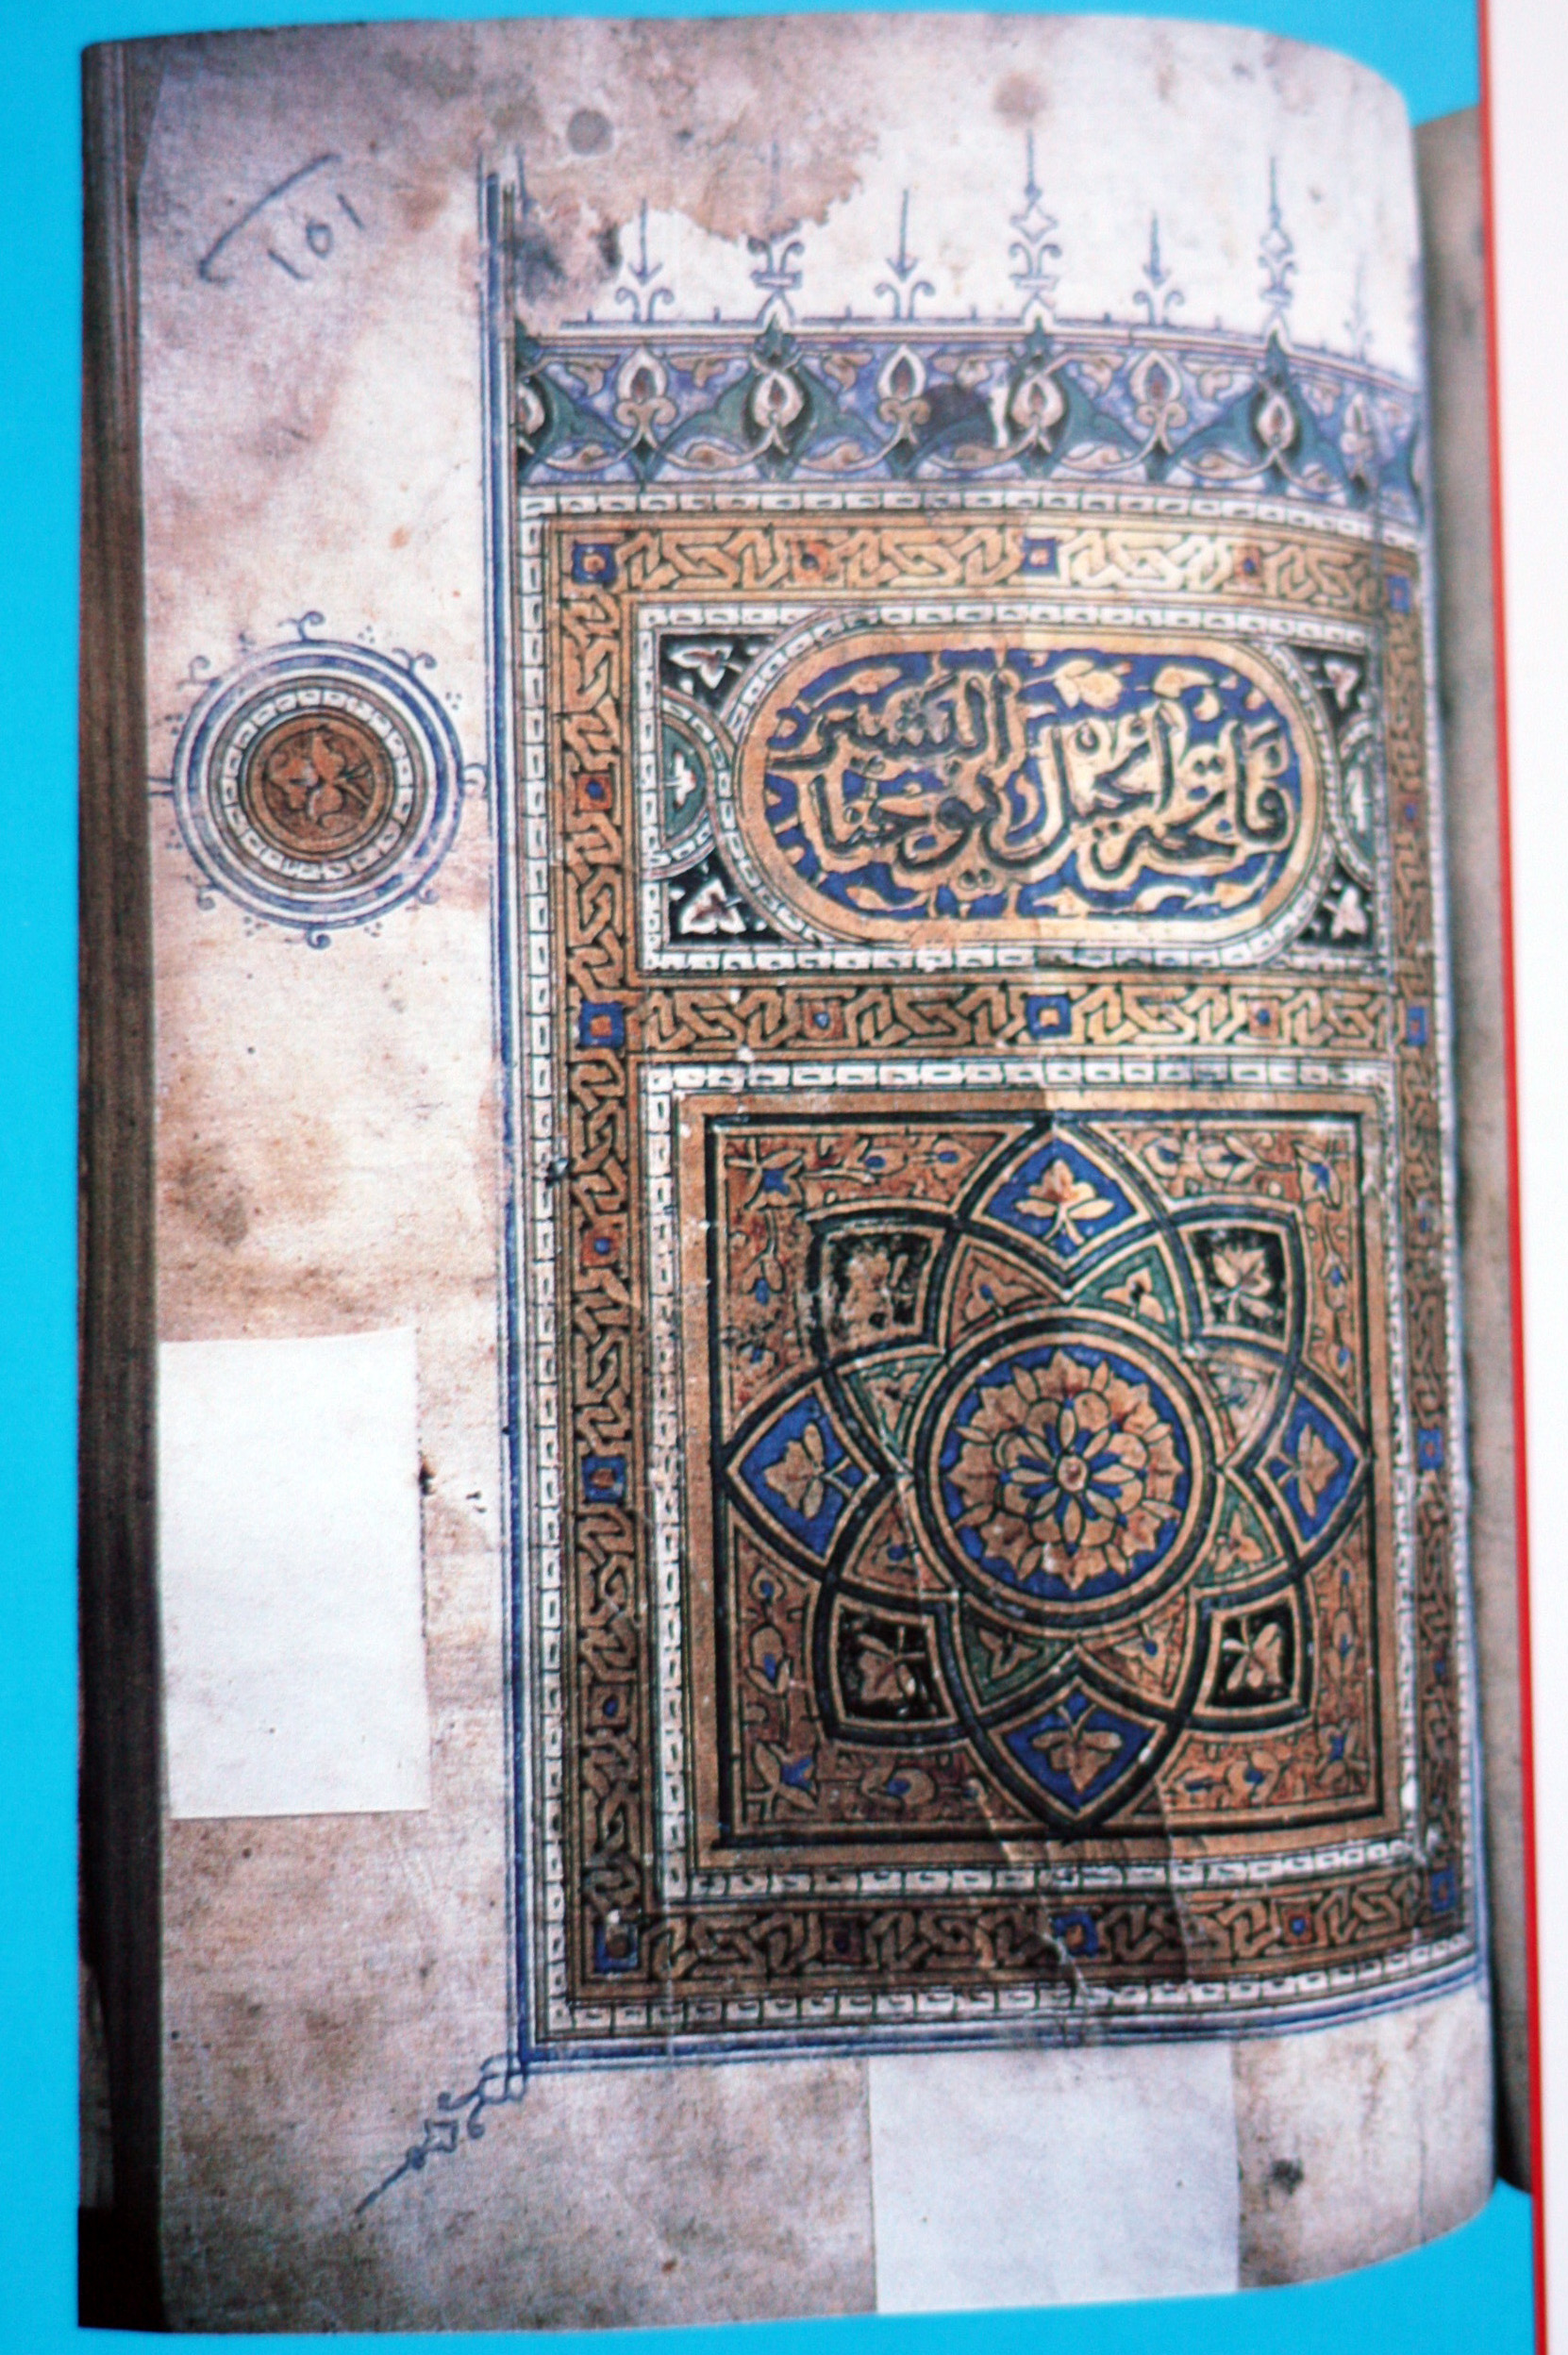 ١٥١
فاتحة أنجيل يوحنا البشير